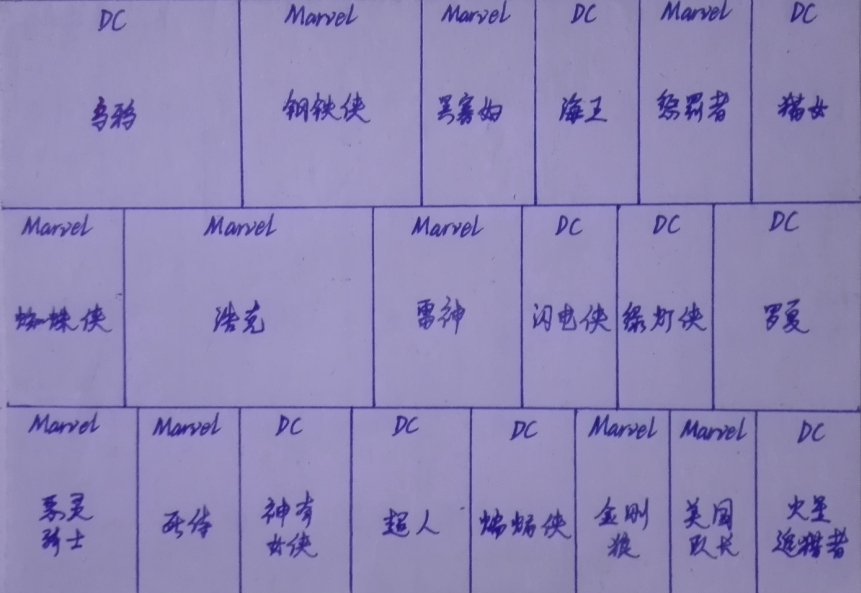 DC Marvel Marvel DC Marvel DC
乌鸦 钢铁侠 黑寡妇 海王 惩罚者 猫女
Marvel Marvel Marvel DC DC DC
蜘蛛侠 浩克 雷神 闪电侠 绿灯侠 罗夏
Marvel Marvel DC DC DC Marvel Marvel DC
恶灵 死侍 神奇 超人 蝙蝠侠 金刚 美国 火星
骑士 女侠 狼 队长 追猎者